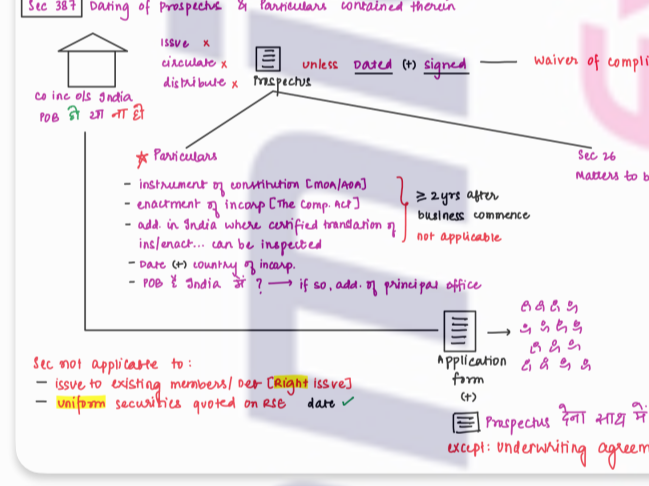 Sec 387 Dating of Prospectus & Particulars contained therein
issue x
circulate x
distribute x
Prospectus
unless Dated (+) signed
Waiver of compli
co inc o/s India
POB हो या ना हो
Particulars
- instrument of constitution [MOA/AOA]
- enactment of incorp [The Comp. Act]
- add. in India where certified translation of
ins/enact... can be inspected
- Date (+) country of incorp.
- POB है India में ? → if so, add. of principal office
≥ 2yrs after
business commence
not applicable
Sec 26
Matters to b
Application
form
(+)
Prospectus देना साथ में
except: underwriting agreem
Sec not applicable to:
- issue to existing members/ [Right issue]
- uniform securities quoted on RSE date ✓